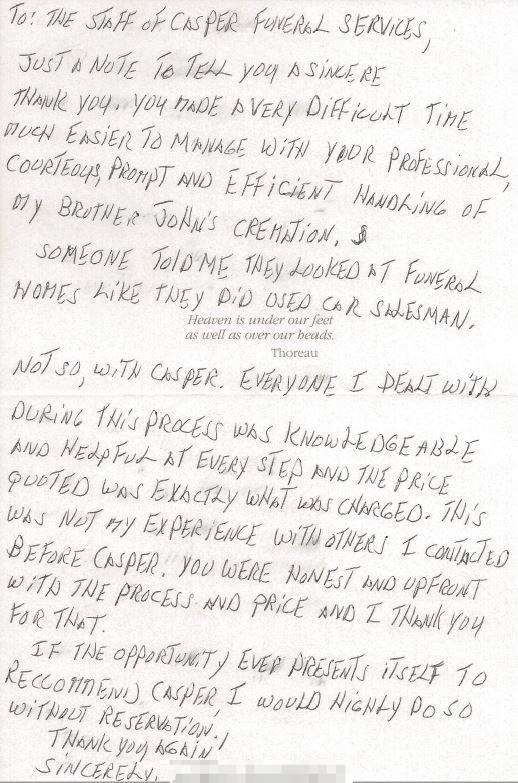 TO: THE STAFF OF CASPER FUNERAL SERVICES,
JUST A NOTE TO TELL YOU A SINCERE
THANK YOU. YOU MADE A VERY DIFFICULT TIME
MUCH EASIER TO MANAGE WITH YOUR PROFESSIONAL,
COURTEOUS, PROMPT AND EFFICIENT HANDLING OF
MY BROTHER JOHN'S CREMATION.
SOMEONE TOLD ME THEY LOOKED AT FUNERAL
HOMES LIKE THEY DID USED CAR SALESMAN.
Heaven is under our feet
as well as over our heads.
Thoreau
NOT SO, WITH CASPER. EVERYONE I DEALT WITH
DURING THIS PROCESS WAS KNOWLEDGEABLE
AND HELPFUL AT EVERY STEP AND THE PRICE
QUOTED WAS EXACTLY WHAT WAS CHARGED. THIS
WAS NOT MY EXPERIENCE WITH OTHERS I CONTACTED
BEFORE CASPER. YOU WERE HONEST AND UPFRONT
WITH THE PROCESS AND PRICE AND I THANK YOU
FOR THAT.
IF THE OPPORTUNITY EVER PRESENTS ITSELF TO
RECCOMMEND CASPER, I WOULD HIGHLY DO SO
WITHOUT RESERVATION!
THANK YOU AGAIN!
SINCERELY,